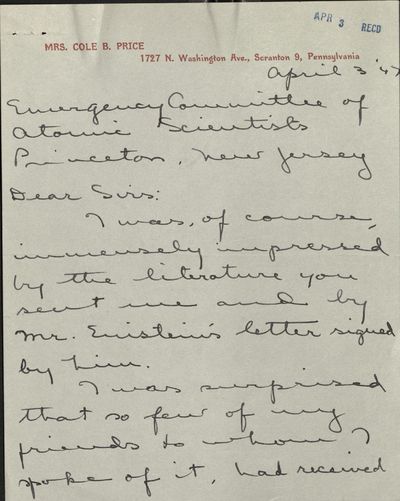 APR 3 RECD
MRS. COLE B. PRICE
1727 N. Washington Ave., Scranton 9, Pennsylvania
April 3 '47
Emergency Committee of
Atomic Scientists
Princeton, New Jersey
Dear Sirs:
I was, of course,
immensely impressed
by the literature you
sent me and by
Mr. Einstein's letter signed
by him.
I was surprised
that so few of my
friends to whom I
spoke of it, had received